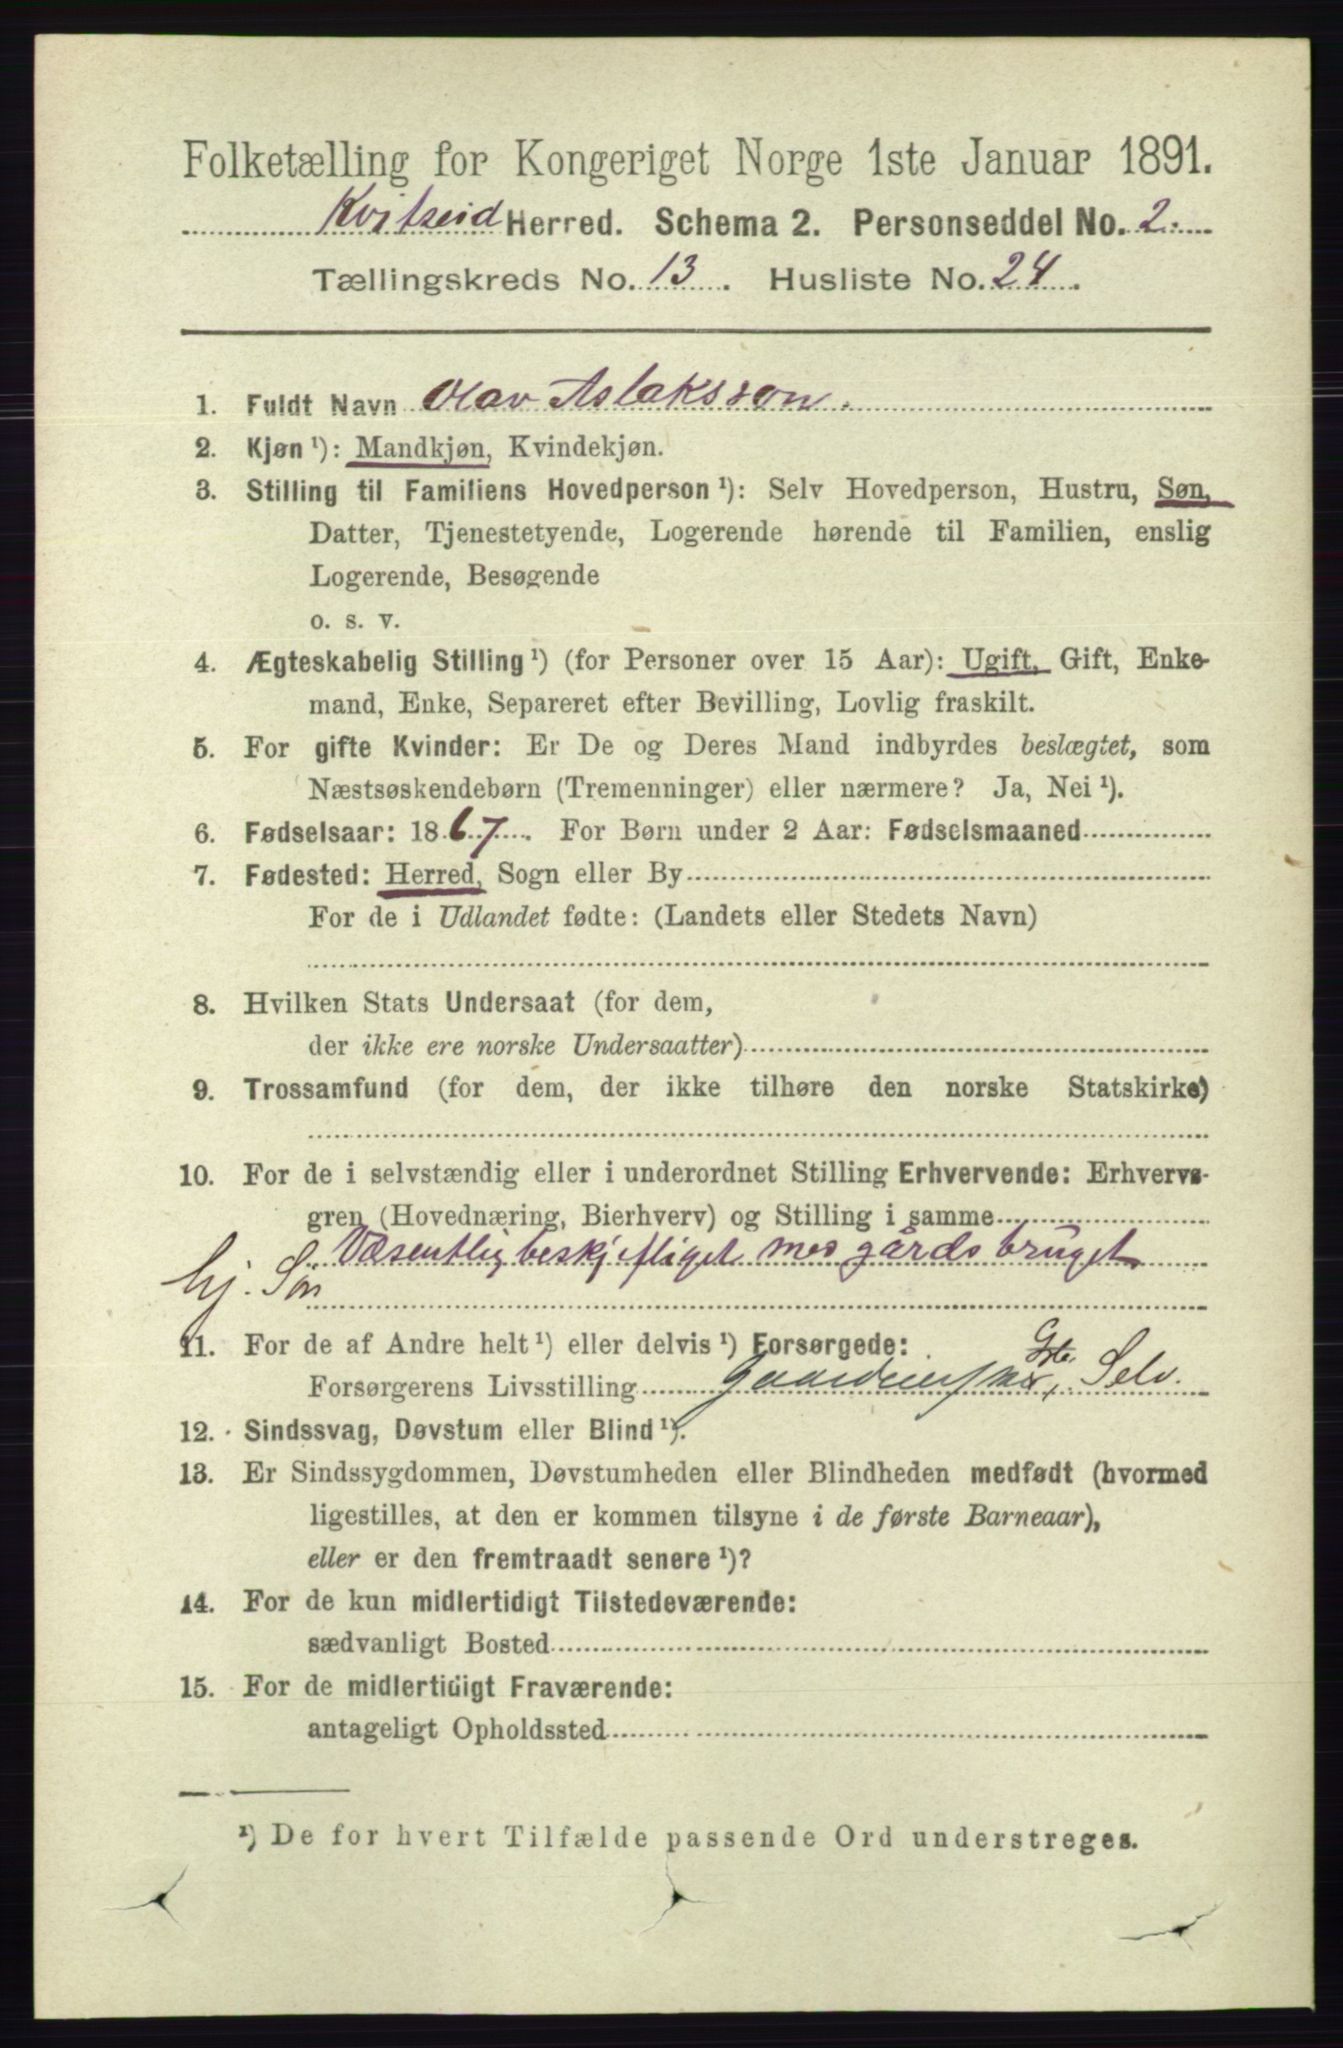 Folketælling for Kongeriget Norge 1ste Januar 1891.
Kvitseid Herred. Schema 2. Personseddel No. 2.
Tællingskreds No. 13. Husliste No. 24.
1. Fuldt Navn Olav Aslaksson.
2. Kjøn ¹): Mandkjøn, Kvindekjøn.
3. Stilling til Familiens Hovedperson ¹): Selv Hovedperson, Hustru, Søn,
Datter, Tjenestetyende, Logerende hørende til Familien, enslig
Logerende, Besøgende
o. s. v.
4. Ægteskabelig Stilling ¹) (for Personer over 15 Aar): Ugift, Gift, Enke-
mand, Enke, Separeret efter Bevilling, Lovlig fraskilt.
5. For gifte Kvinder: Er De og Deres Mand indbyrdes beslægtet, som
Næstsøskendebørn (Tremenninger) eller nærmere? Ja, Nei ¹).
6. Fødselsaar: 1867. For Børn under 2 Aar: Fødselsmaaned
7. Fødested: Herred, Sogn eller By
For de i Udlandet fødte: (Landets eller Stedets Navn)
8. Hvilken Stats Undersaat (for dem,
der ikke ere norske Undersaatter)
9. Trossamfund (for dem, der ikke tilhøre den norske Statskirke)
10. For de i selvstændig eller i underordnet Stilling Erhvervende: Erhvervs-
gren (Hovednæring, Bierhverv) og Stilling i samme
Væsentlig beskjeftiget med gårdsbruget
hj. Søn
11. For de af Andre helt ¹) eller delvis ¹) Forsørgede:
Forsørgerens Livsstilling Selv.
12. Sindssvag, Døvstum eller Blind ¹).
13. Er Sindssygdommen, Døvstumheden eller Blindheden medfødt (hvormed
ligestilles, at den er kommen tilsyne i de første Barneaar),
eller er den fremtraadt senere ¹)?
14. For de kun midlertidigt Tilstedeværende:
sædvanligt Bosted
15. For de midlertidigt Fraværende:
antageligt Opholdssted
¹) De for hvert Tilfælde passende Ord understreges.